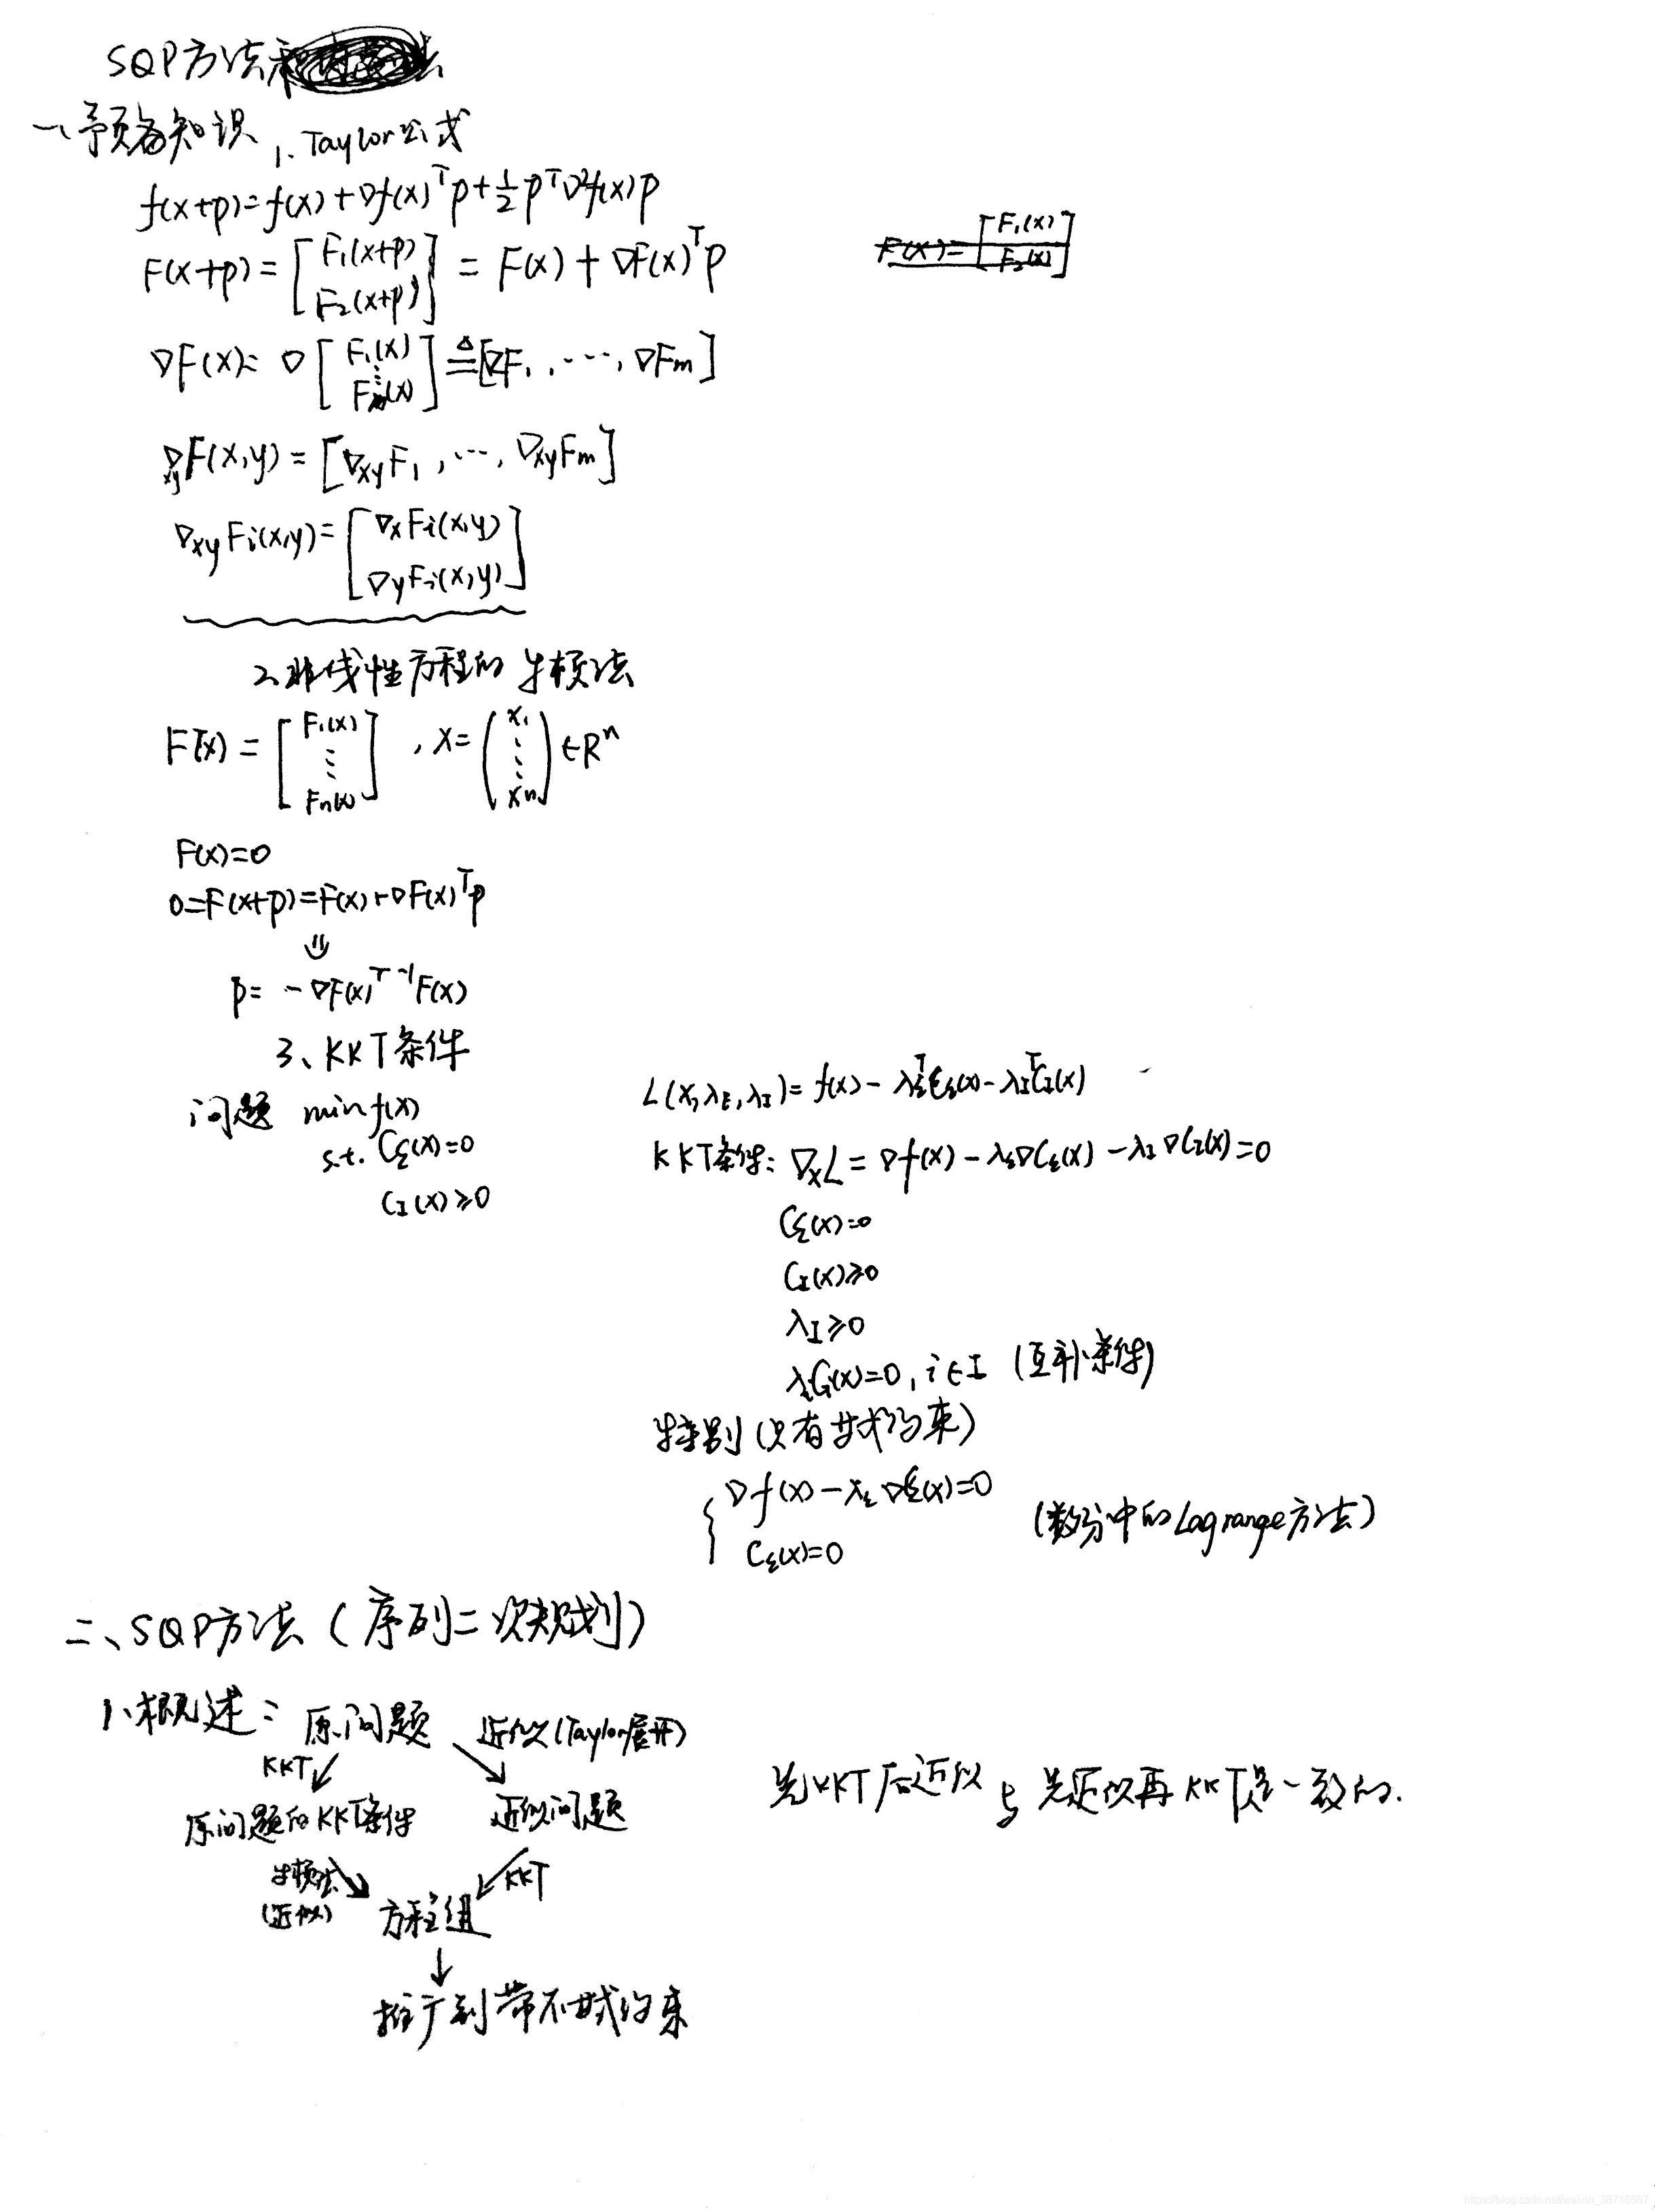 SQP方法
一、预备知识 1. Taylor公式
f(x+p)=f(x)+∇f(x)ᵀp+½pᵀ∇²f(x)p
F(x+p)=[F₁(x+p) F₂(x+p)]=F(x)+∇F(x)ᵀp
F(x)=[F₁(x) F₂(x)]
∇F(x)=∇[F₁(x) ⋮ Fₘ(x)]≜[∇F₁,⋯,∇Fₘ]
∇xyF(x,y)=[∇xyF₁,⋯,∇xyFm]
∇xyFi(x,y)=[∇xFi(x,y) ∇yFi(x,y)]
2、非线性方程的牛顿法
F(x)=[F₁(x) ⋮ Fn(x)], x=(x₁ ⋮ xn)∈Rⁿ
F(x)=0
0=F(x+p)=F(x)+∇F(x)ᵀp
⇓
p=-∇F(x)ᵀ⁻¹F(x)
3、KKT条件
问题 min f(x)
s.t. Cε(x)=0
C_I(x)≥0
L(x,λε,λ_I)=f(x)-λεᵀCε(x)-λ_IᵀC_I(x)
KKT条件: ∇xL=∇f(x)-λε∇Cε(x)-λ_I∇C_I(x)=0
Cε(x)=0
C_I(x)≥0
λ_I≥0
λiCi(x)=0, i∈I (互补条件)
特别(只有等式约束)
{∇f(x)-λε∇Cε(x)=0
Cε(x)=0
(数分中的Lagrange方法)
二、SQP方法(序列二次规划)
1、概述: 原问题 近似(Taylor展开)
KKT↙ ↘
原问题的KKT条件 近似问题
先KKT后近似与先近似再KKT是一致的.
牛顿法↘ ↙KKT
(近似) 方程组
↓
推广到带不等式约束
https://blog.csdn.net/weixin_38716567